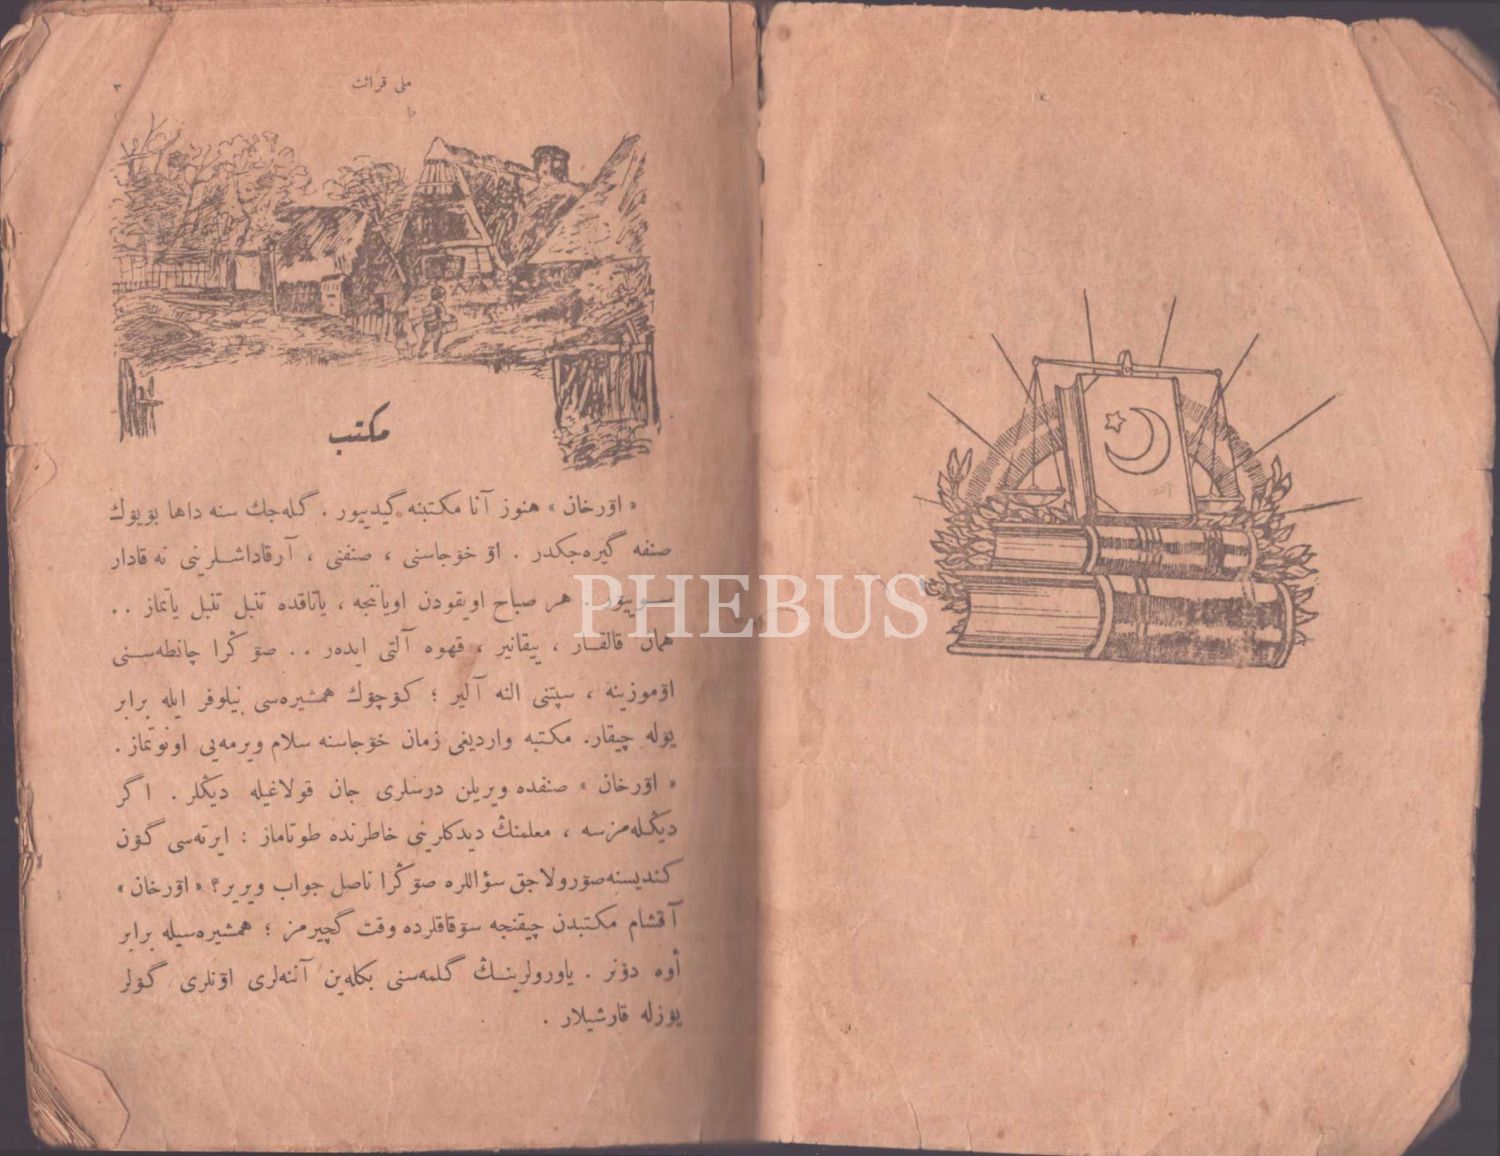 ملی قرائت ٣
مكتب
« اۆرخان » هنوز آنا مكتبنه گیدییور . گله‌جك سنه داها بۆیوك
صنفه گیره‌جكدر . اۆ خوٚجاسنی ، صنفنی ، آرقاداشلرینی نه قادار
هر صباح اویقودن اویاننجه ، یاتاقده تنبل تنبل یاتماز . .
همان قالقار ، ییقانیر ، قهوه آلتی ایده‌ر . . صوٚڭرا چانطه‌سنی
اۆموزینه ، سپتنی النه آلیر ؛ كۆچۆك همشیره‌سی نیلوفر ایله برابر
یوله چیقار. مكتبه واردیغی زمان خوٚجاسنه سلام ویرمه‌یی اونوتماز .
« اۆرخان » صنفده ویریلن درسلری جان قولاغیله دیڭلر . اگر
دیڭله‌مزسه ، معلمنڭ دیدكلرینی خاطرنده طوتاماز : ایرته‌سی گۆن
كندیسنه صوٚرولاجق سؤاللره صوٚڭرا ناصل جواب ویریر؟ « اۆرخان »
آقشام مكتبدن چیقنجه سوٚقاقلرده وقت گچیرمز ؛ همشیره‌سیله برابر
أوه دوٚنر . یاورولرینڭ گلمه‌سنی بكله‌ین آننه‌لری اوٚنلری گۆلر
یۆزله قارشیلار .
PHEBUS